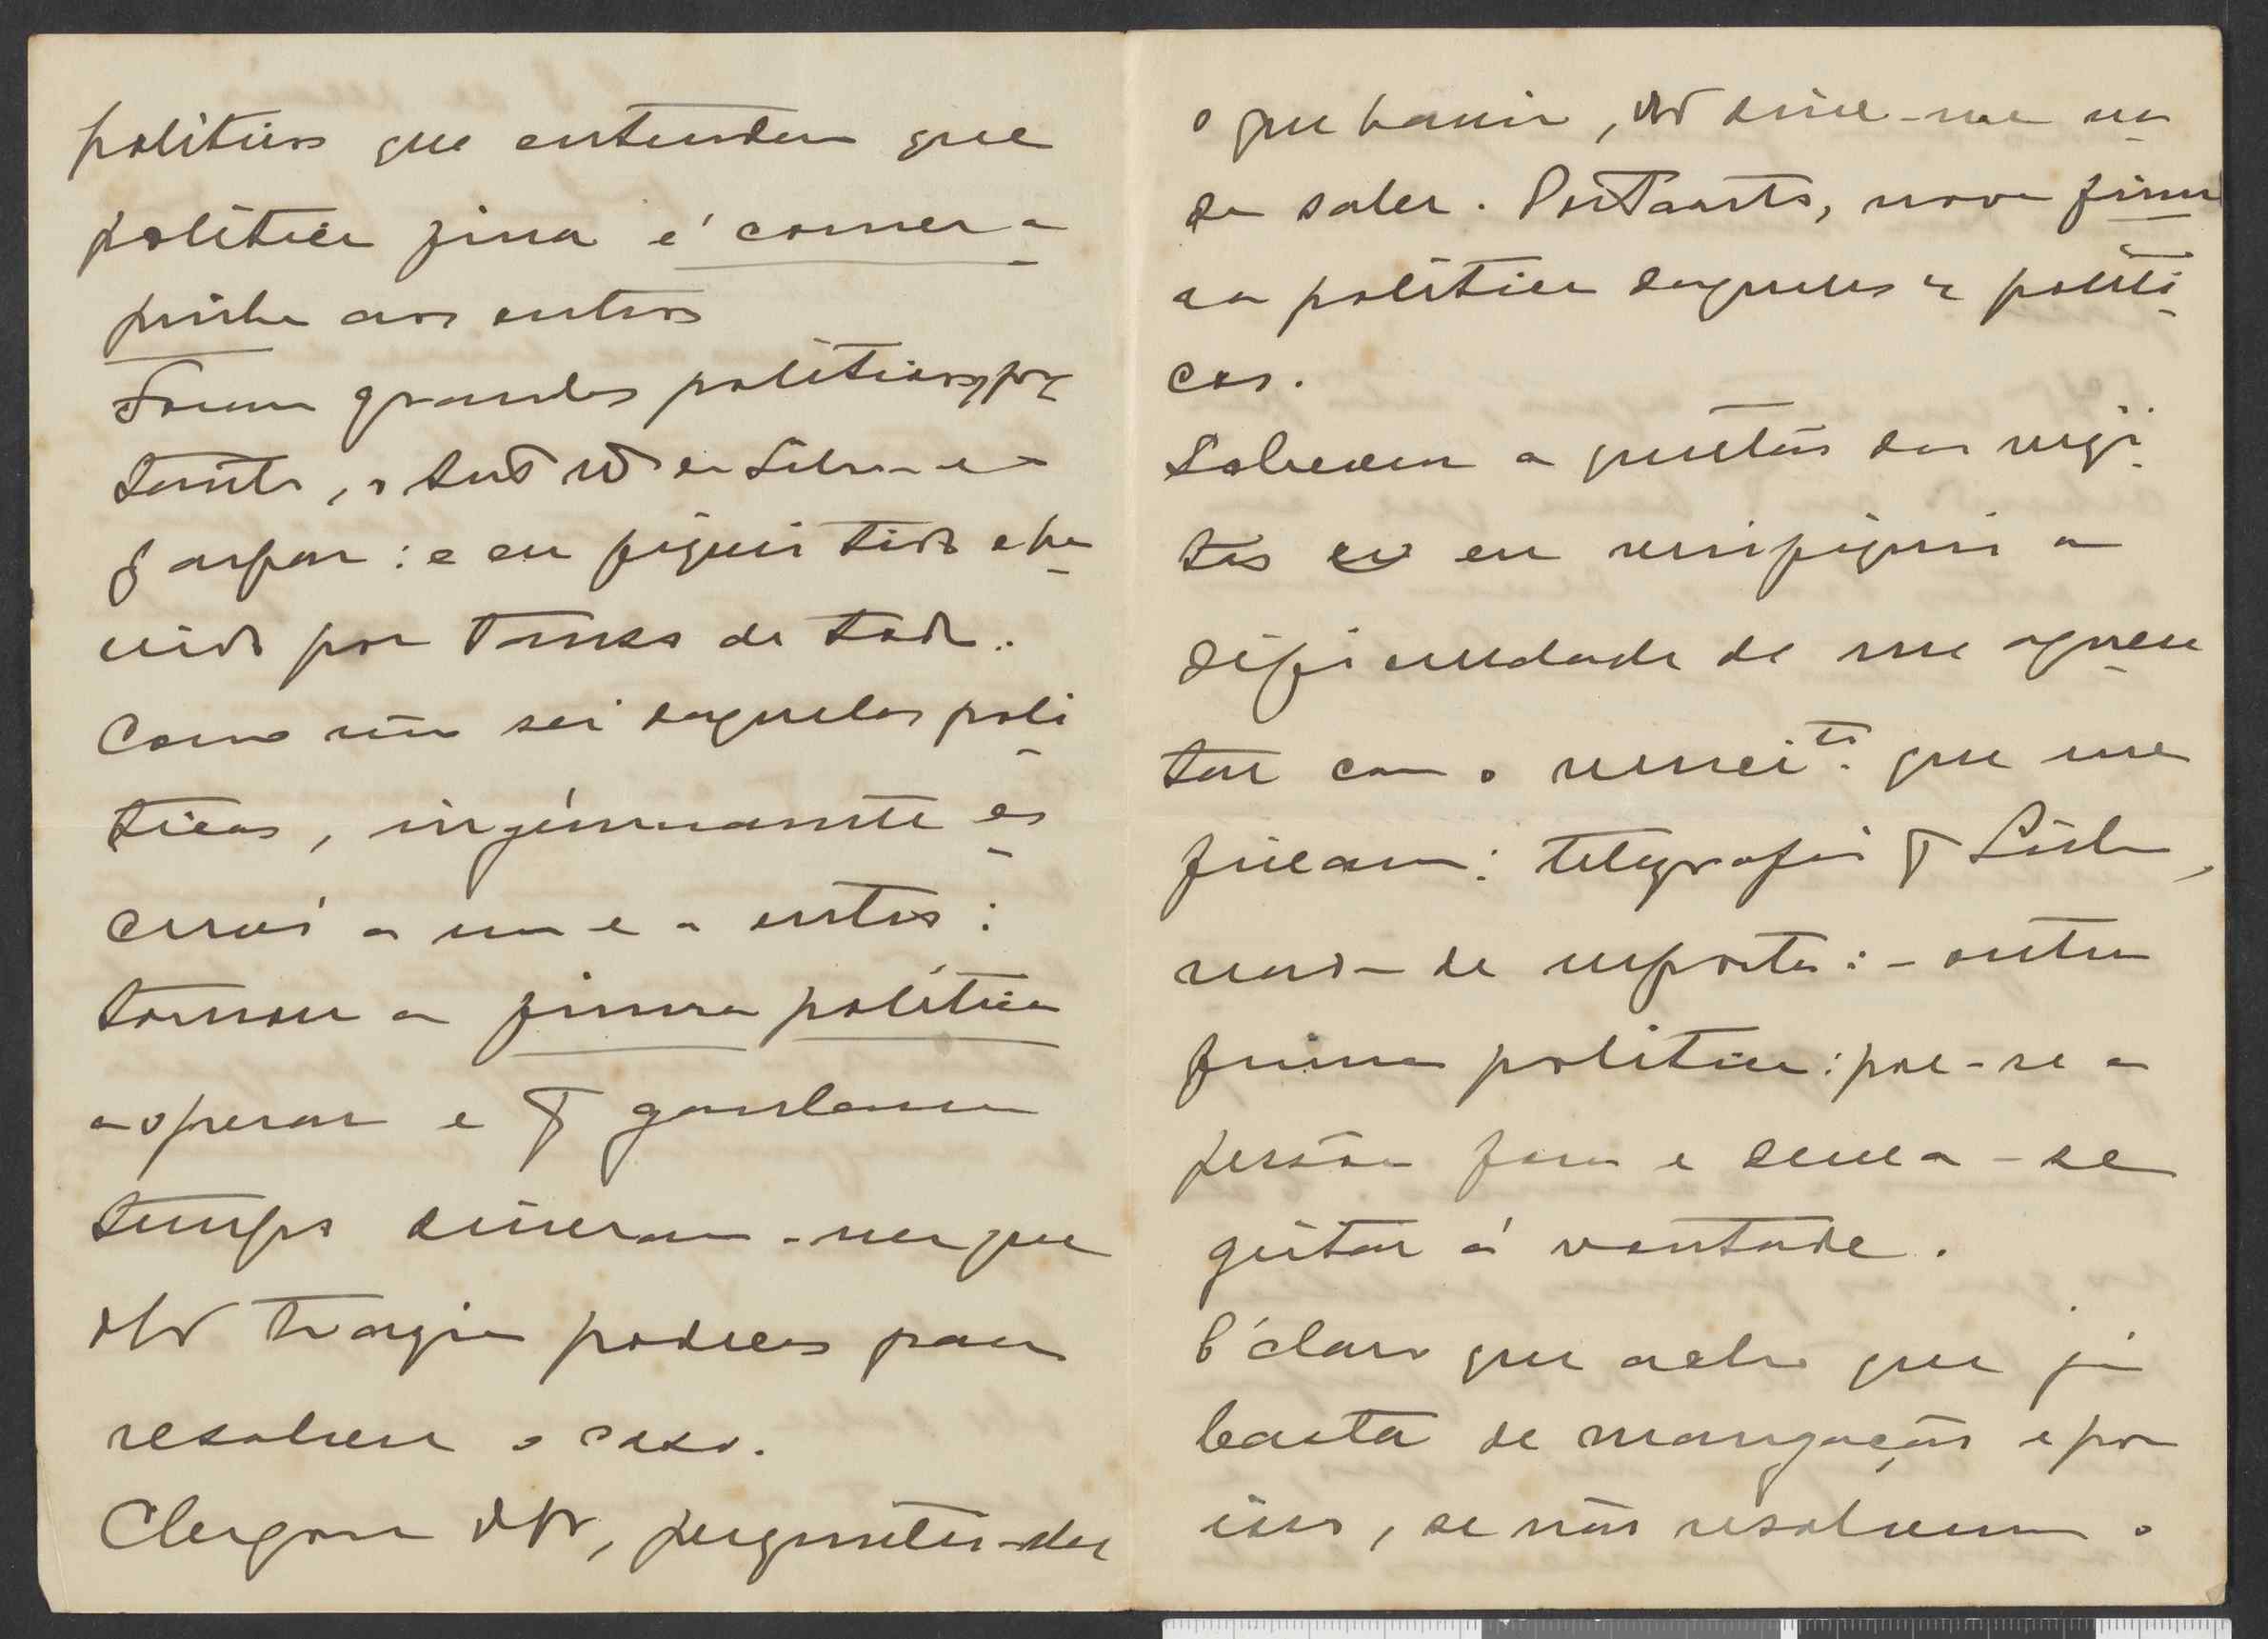 politicos que entendem que
politica fina é comer a
pinha aos outros
Foram grandes politicos, por
tanto, o da Silva e o
Gaspar: e eu fiquei tido e ha
vido por tonso de todo.
Como não sei daquelas poli
ticas, ingénuamente es
crevi a um e a outro:
tornou a finura politica
a operar e p. ganharem
tempo disseram-me que
trazia poderes para
resolver o caso.
Chegou, perguntei-lhe
o que havia, disse-me na
da saber. Portanto, nova finu
ra politica daqueles 2 politi
cos.
Solvem a questão dos regi
tos eu en verifiquei a
dificuldade de me aguen
tar com o vencito. que me
ficam: telegrafei p. Lisboa,
nada de resposta: - outra
finura politica: põe-se a
pessoa fora e deixa-se
gritar á vontade.
E' claro que acho que já
basta de mangação e por
isso, se não resolverem o